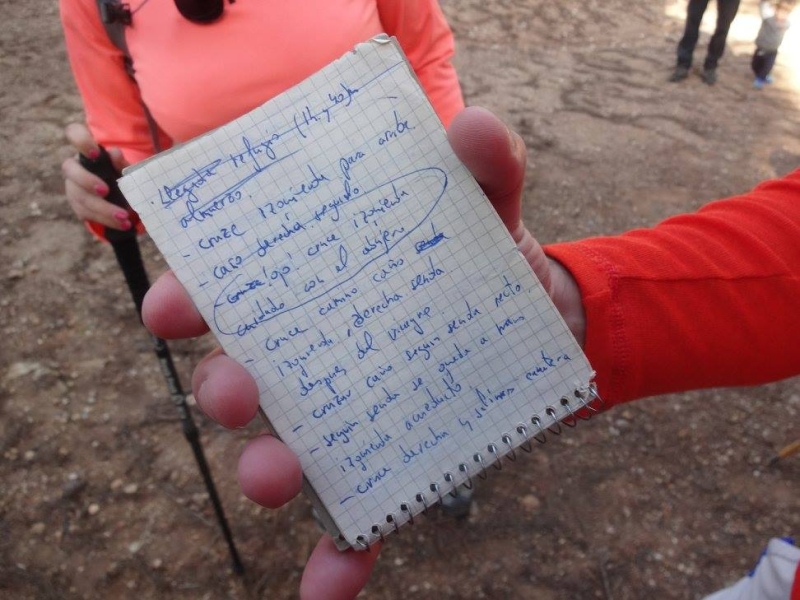 Llegada refugio (1h. y 40)
almuerzo.
- cruze izquierda para arriba
- caño derecha seguido
cruze ¡ojo! cruce izquierda
cuidado con el
- Cruce camino caño senda
izquierda y derecha senda.
despues del
- cruzar caño seguir senda recto
- seguir senda se queda a mano
izquierda acueducto
- cruce derecha y salimos carretera